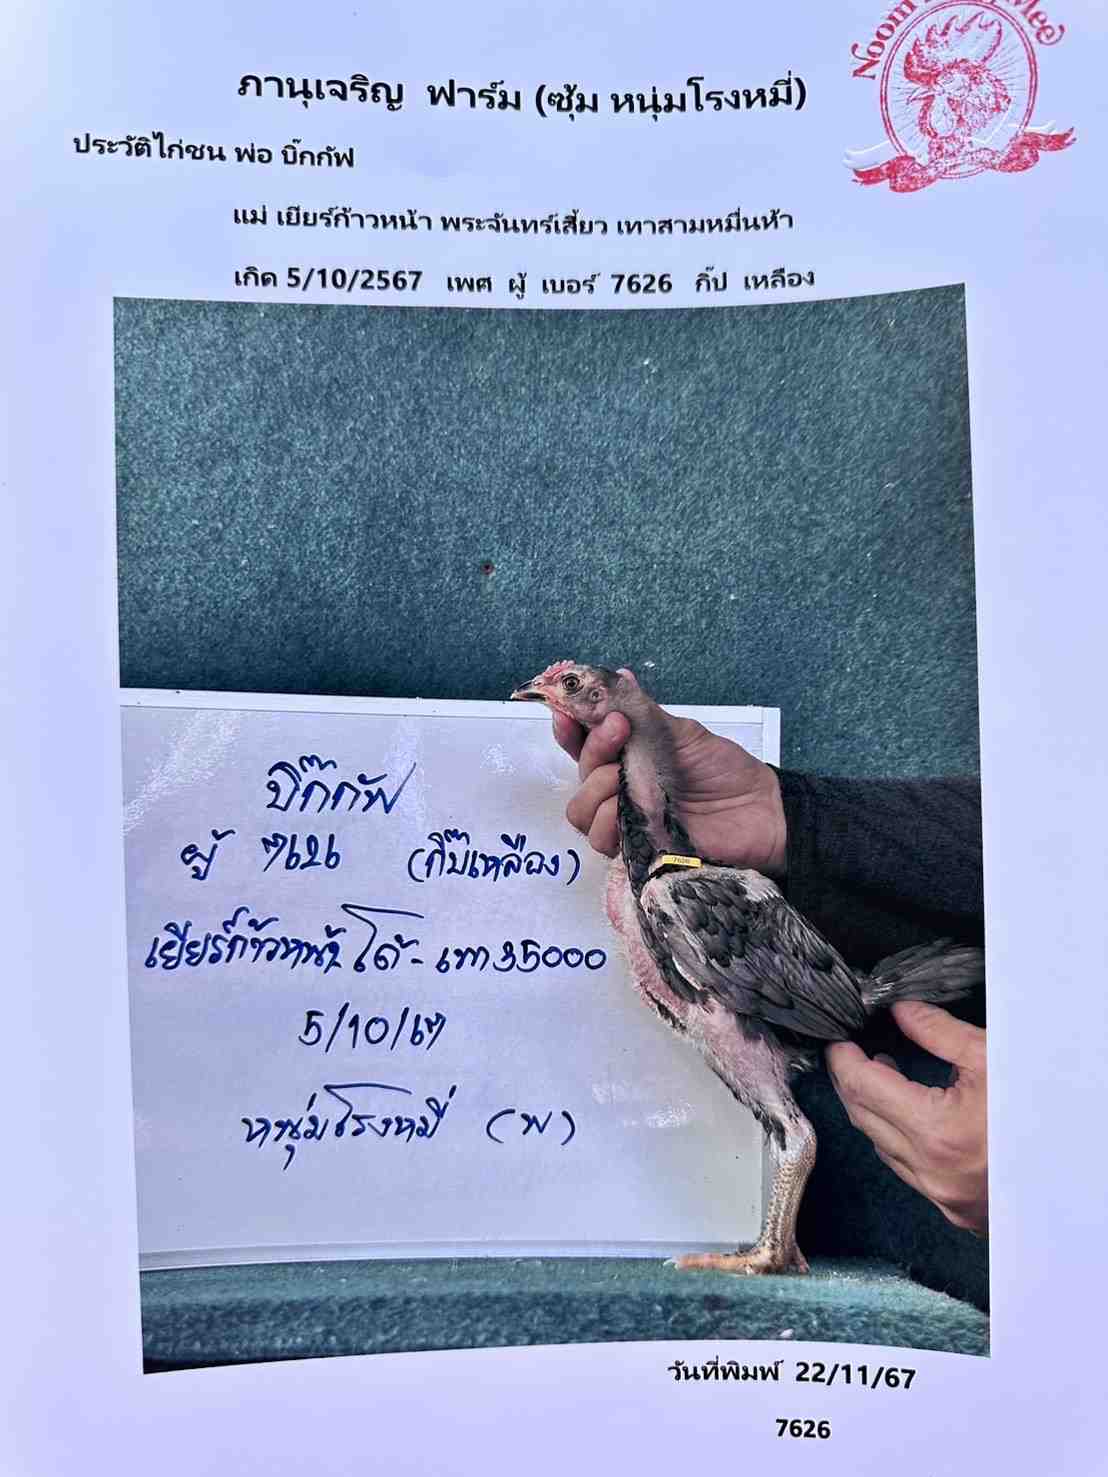 Noom
Mee
ภานุเจริญ ฟาร์ม (ซุ้ม หนุ่มโรงหมี่)
ประวัติไก่ชน พ่อ บิ๊กกัฟ
แม่ เยียร์ก้าวหน้า พระจันทร์เสี้ยว เทาสามหมื่นห้า
เกิด 5/10/2567 เพศ ผู้ เบอร์ 7626 กิ๊ป เหลือง
บิ๊กกัฟ
ผู้ ๗๖๒๖ (กิ๊บเหลือง)
7626
เยียร์ก้าวหน้า โต้-เทา35000
5/10/๖๗
หนุ่มโรงหมี่ (พ)
วันที่พิมพ์ 22/11/67
7626